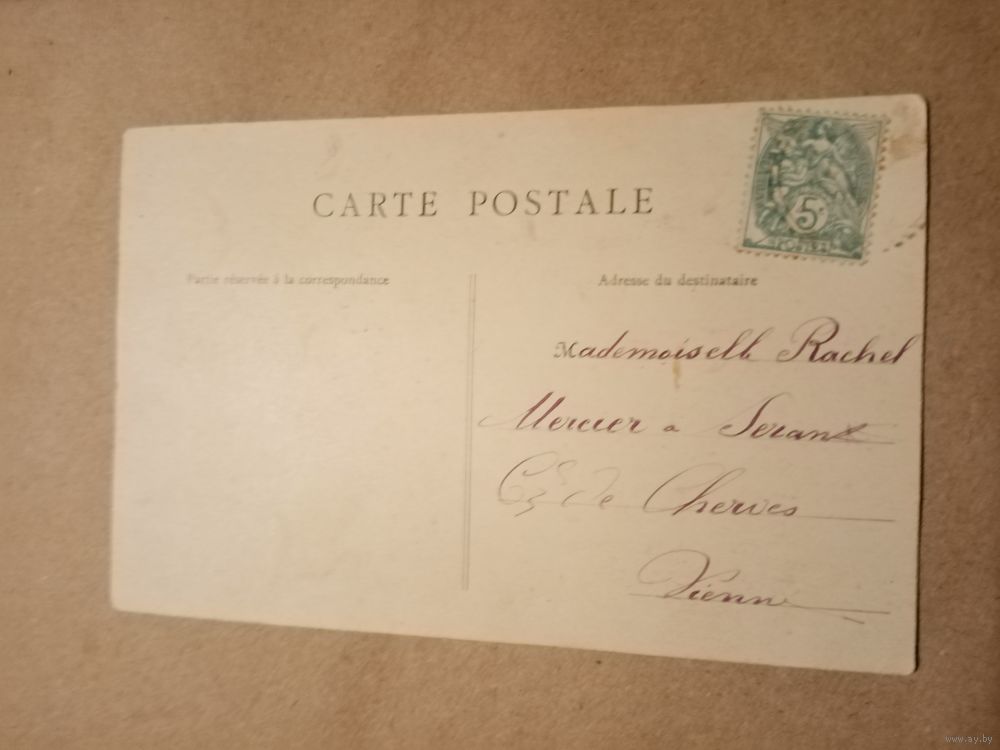 CARTE POSTALE
5
POSTES
Partie réservée à la correspondance
Adresse du destinataire
Mademoiselle Rachel
Mercier a Serant
Cne de Cherves
Vienne
www.ay.by